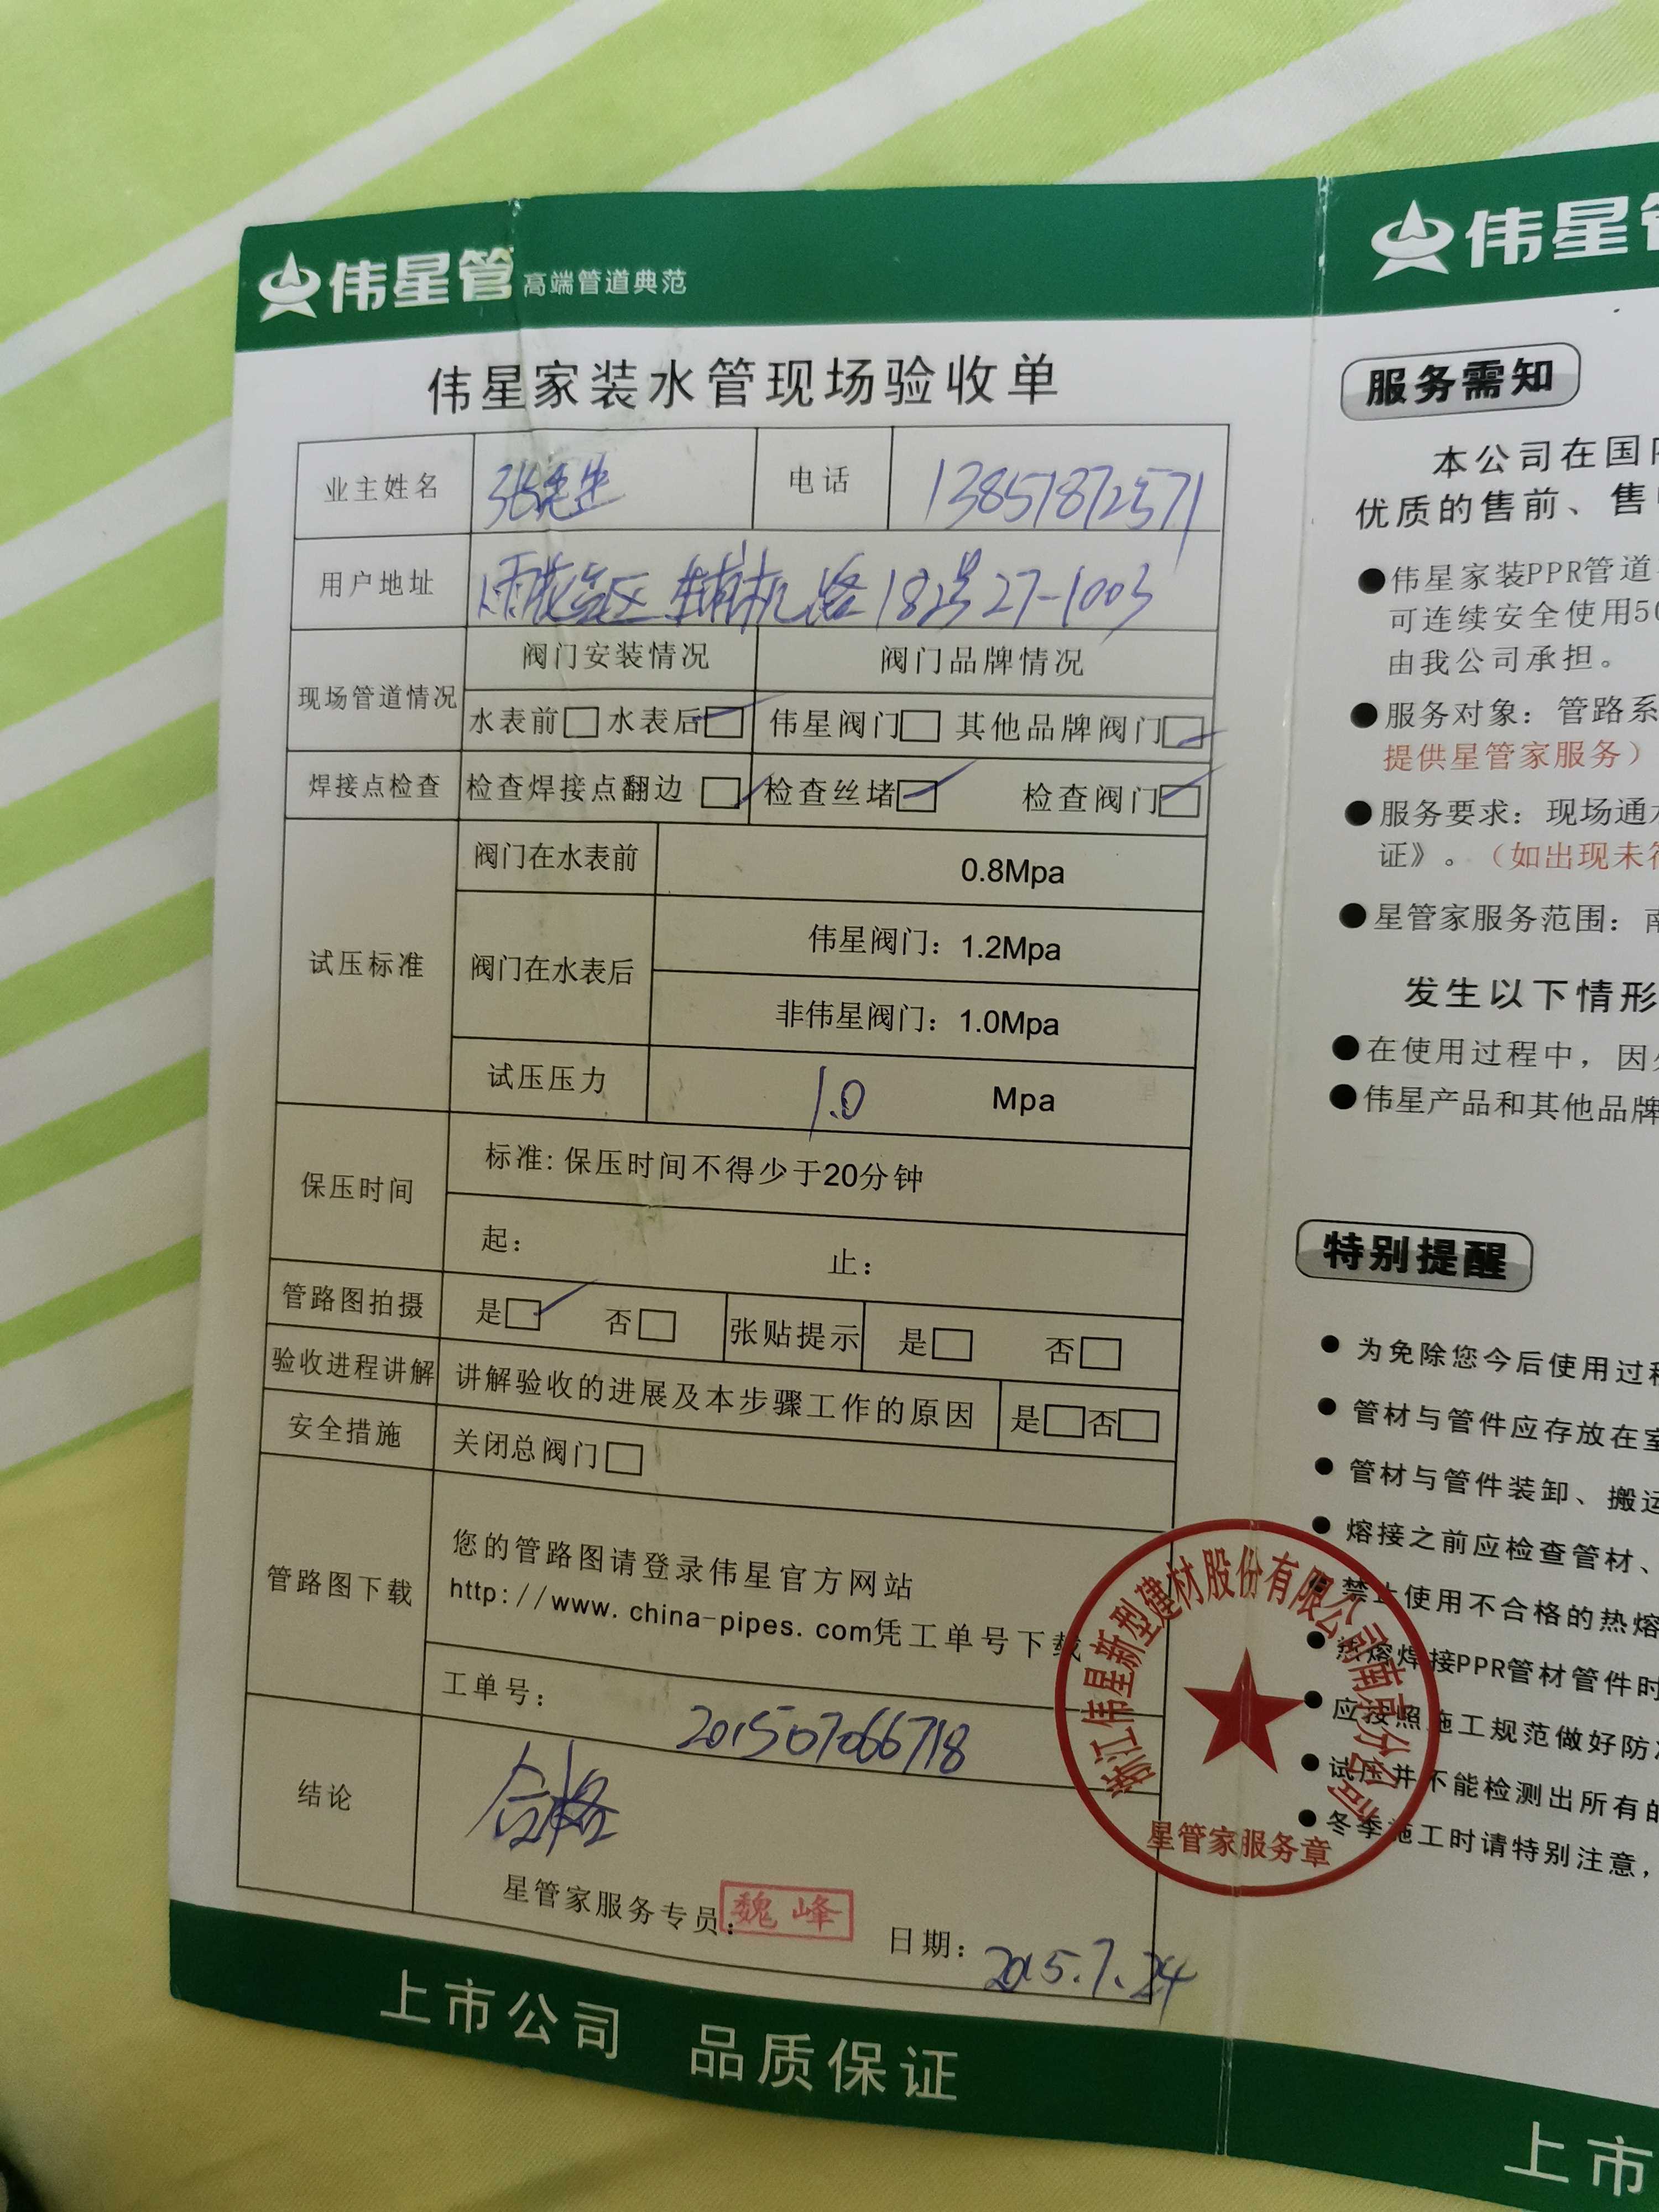 伟星管 高端管道典范
伟星家装水管现场验收单
业主姓名 张先生 电话 13851872571
用户地址 雨花台区 路182号27-1003
现场管道情况 阀门安装情况 阀门品牌情况
水表前□ 水表后☑ 伟星阀门□ 其他品牌阀门☑
焊接点检查 检查焊接点翻边☑ 检查丝堵☑ 检查阀门☑
试压标准 阀门在水表前 0.8Mpa
阀门在水表后 伟星阀门：1.2Mpa
非伟星阀门：1.0Mpa
试压压力 1.0 Mpa
保压时间 标准：保压时间不得少于20分钟
起： 止：
管路图拍摄 是☑ 否□ 张贴提示 是□ 否□
验收进程讲解 讲解验收的进展及本步骤工作的原因 是□否□
安全措施 关闭总阀门□
管路图下载 您的管路图请登录伟星官方网站
http://www.china-pipes.com凭工单号下载
工单号： 201507066718
结论 合格
星管家服务专员： 魏峰 日期： 2015.7.24
浙江伟星新型建材股份有限公司南京分公司
星管家服务章
上市公司 品质保证
伟星管
服务需知
本公司在国
优质的售前、售
●伟星家装PPR管道
可连续安全使用50
由我公司承担。
●服务对象：管路系
提供星管家服务）
●服务要求：现场通
证》。（如出现未
●星管家服务范围：南
发生以下情形
●在使用过程中，因
●伟星产品和其他品牌
特别提醒
●为免除您今后使用过程
●管材与管件应存放在室
●管材与管件装卸、搬运
●熔接之前应检查管材、
●禁止使用不合格的热熔
●热熔焊接PPR管材管件时
●应按照施工规范做好防
●试压并不能检测出所有的
●冬季施工时请特别注意，
上市